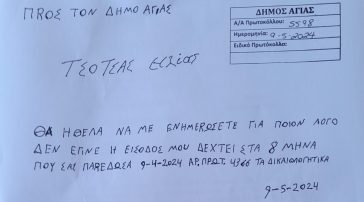 ΠΡΟΣ ΤΟΝ ΔΗΜΟ ΑΓΙΑΣ
ΔΗΜΟΣ ΑΓΙΑΣ
Α/Α Πρωτοκόλλου: 5598
Ημερομηνία: 9-5-2024
Ειδικό Πρωτόκολλο:
ΤΣΟΤΣΑΣ
ΘΑ ΗΘΕΛΑ ΝΑ ΜΕ ΕΝΗΜΕΡΩΣΕΤΕ ΓΙΑ ΠΟΙΟΝ ΛΟΓΟ
ΔΕΝ ΕΓΙΝΕ Η ΕΙΣΟΔΟΣ ΜΟΥ ΔΕΧΤΕΙ ΣΤΑ 8 ΜΗΝΑ
ΠΟΥ ΣΑΣ ΠΑΡΕΔΩΣΑ 9-4-2024 ΑΡ. ΠΡΩΤ. 4366 ΤΑ ΔΙΚΑΙΟΛΟΓΗΤΙΚΑ
9-5-2024